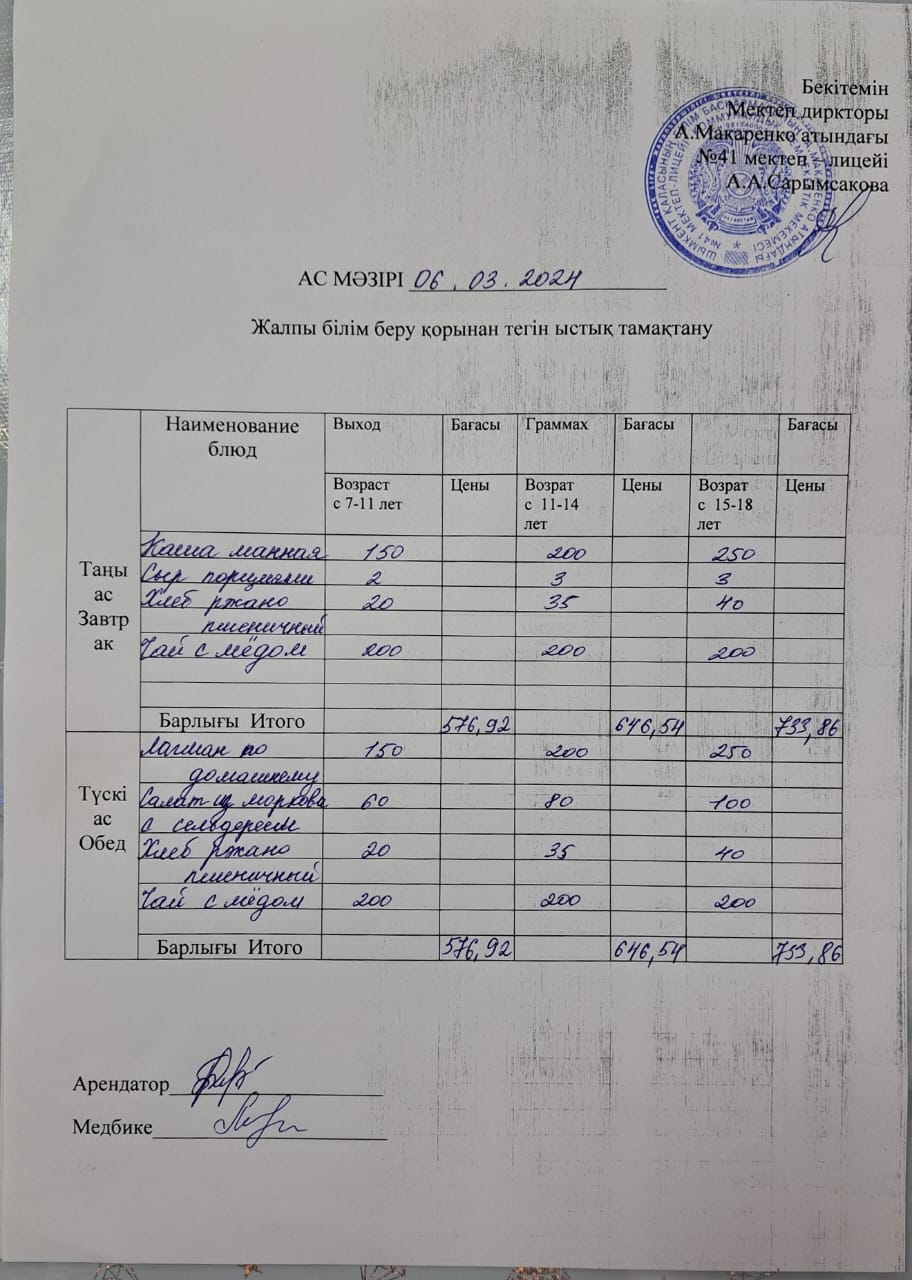 Бекітемін
Мектеп диркторы
А.Макаренко атындағы
№41 мектеп - лицейі
А.А.Сарымсакова
АС МӘЗІРІ 06.03.2024
Жалпы білім беру қорынан тегін ыстық тамақтану
Наименование блюд Выход Бағасы Граммах Бағасы Бағасы
Возраст с 7-11 лет Цены Возрат с 11-14 лет Цены Возрат с 15-18 лет Цены
Таңы ас Завтрак
Каша манная 150 200 250
Сыр порциями 2 3 3
Хлеб ржано 20 35 40
пшеничный
Чай с мёдом 200 200 200
Барлығы Итого 576,92 646,54 733,86
Түскі ас Обед
Лагман по 150 200 250
домашнему
Салат из моркова 60 80 100
с сельдереем
Хлеб ржано 20 35 40
пшеничный
Чай с мёдом 200 200 200
Барлығы Итого 576,92 646,54 733,86
Арендатор
Медбике